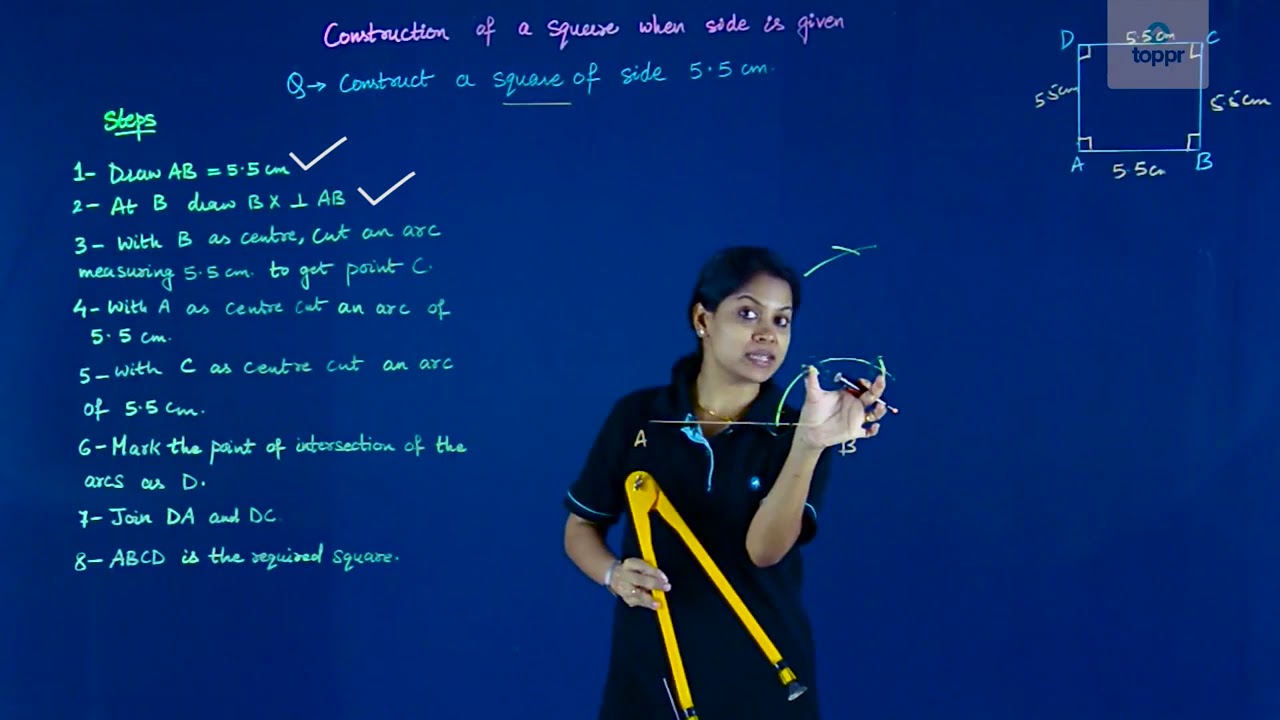 Construction of a square when side is given
Q→ Construct a square of side 5.5 cm.
Steps
1- Draw AB = 5.5 cm
2- At B draw BX ⊥ AB
3- With B as centre, cut an arc
measuring 5.5 cm. to get point C.
4- With A as centre cut an arc of
5.5 cm.
5- With C as centre cut an arc
of 5.5 cm.
6- Mark the point of intersection of the
arcs as D.
7- Join DA and DC.
8- ABCD is the required square.
D 5.5cm C
toppr
5.5cm 5.5cm
A 5.5cm B
A B